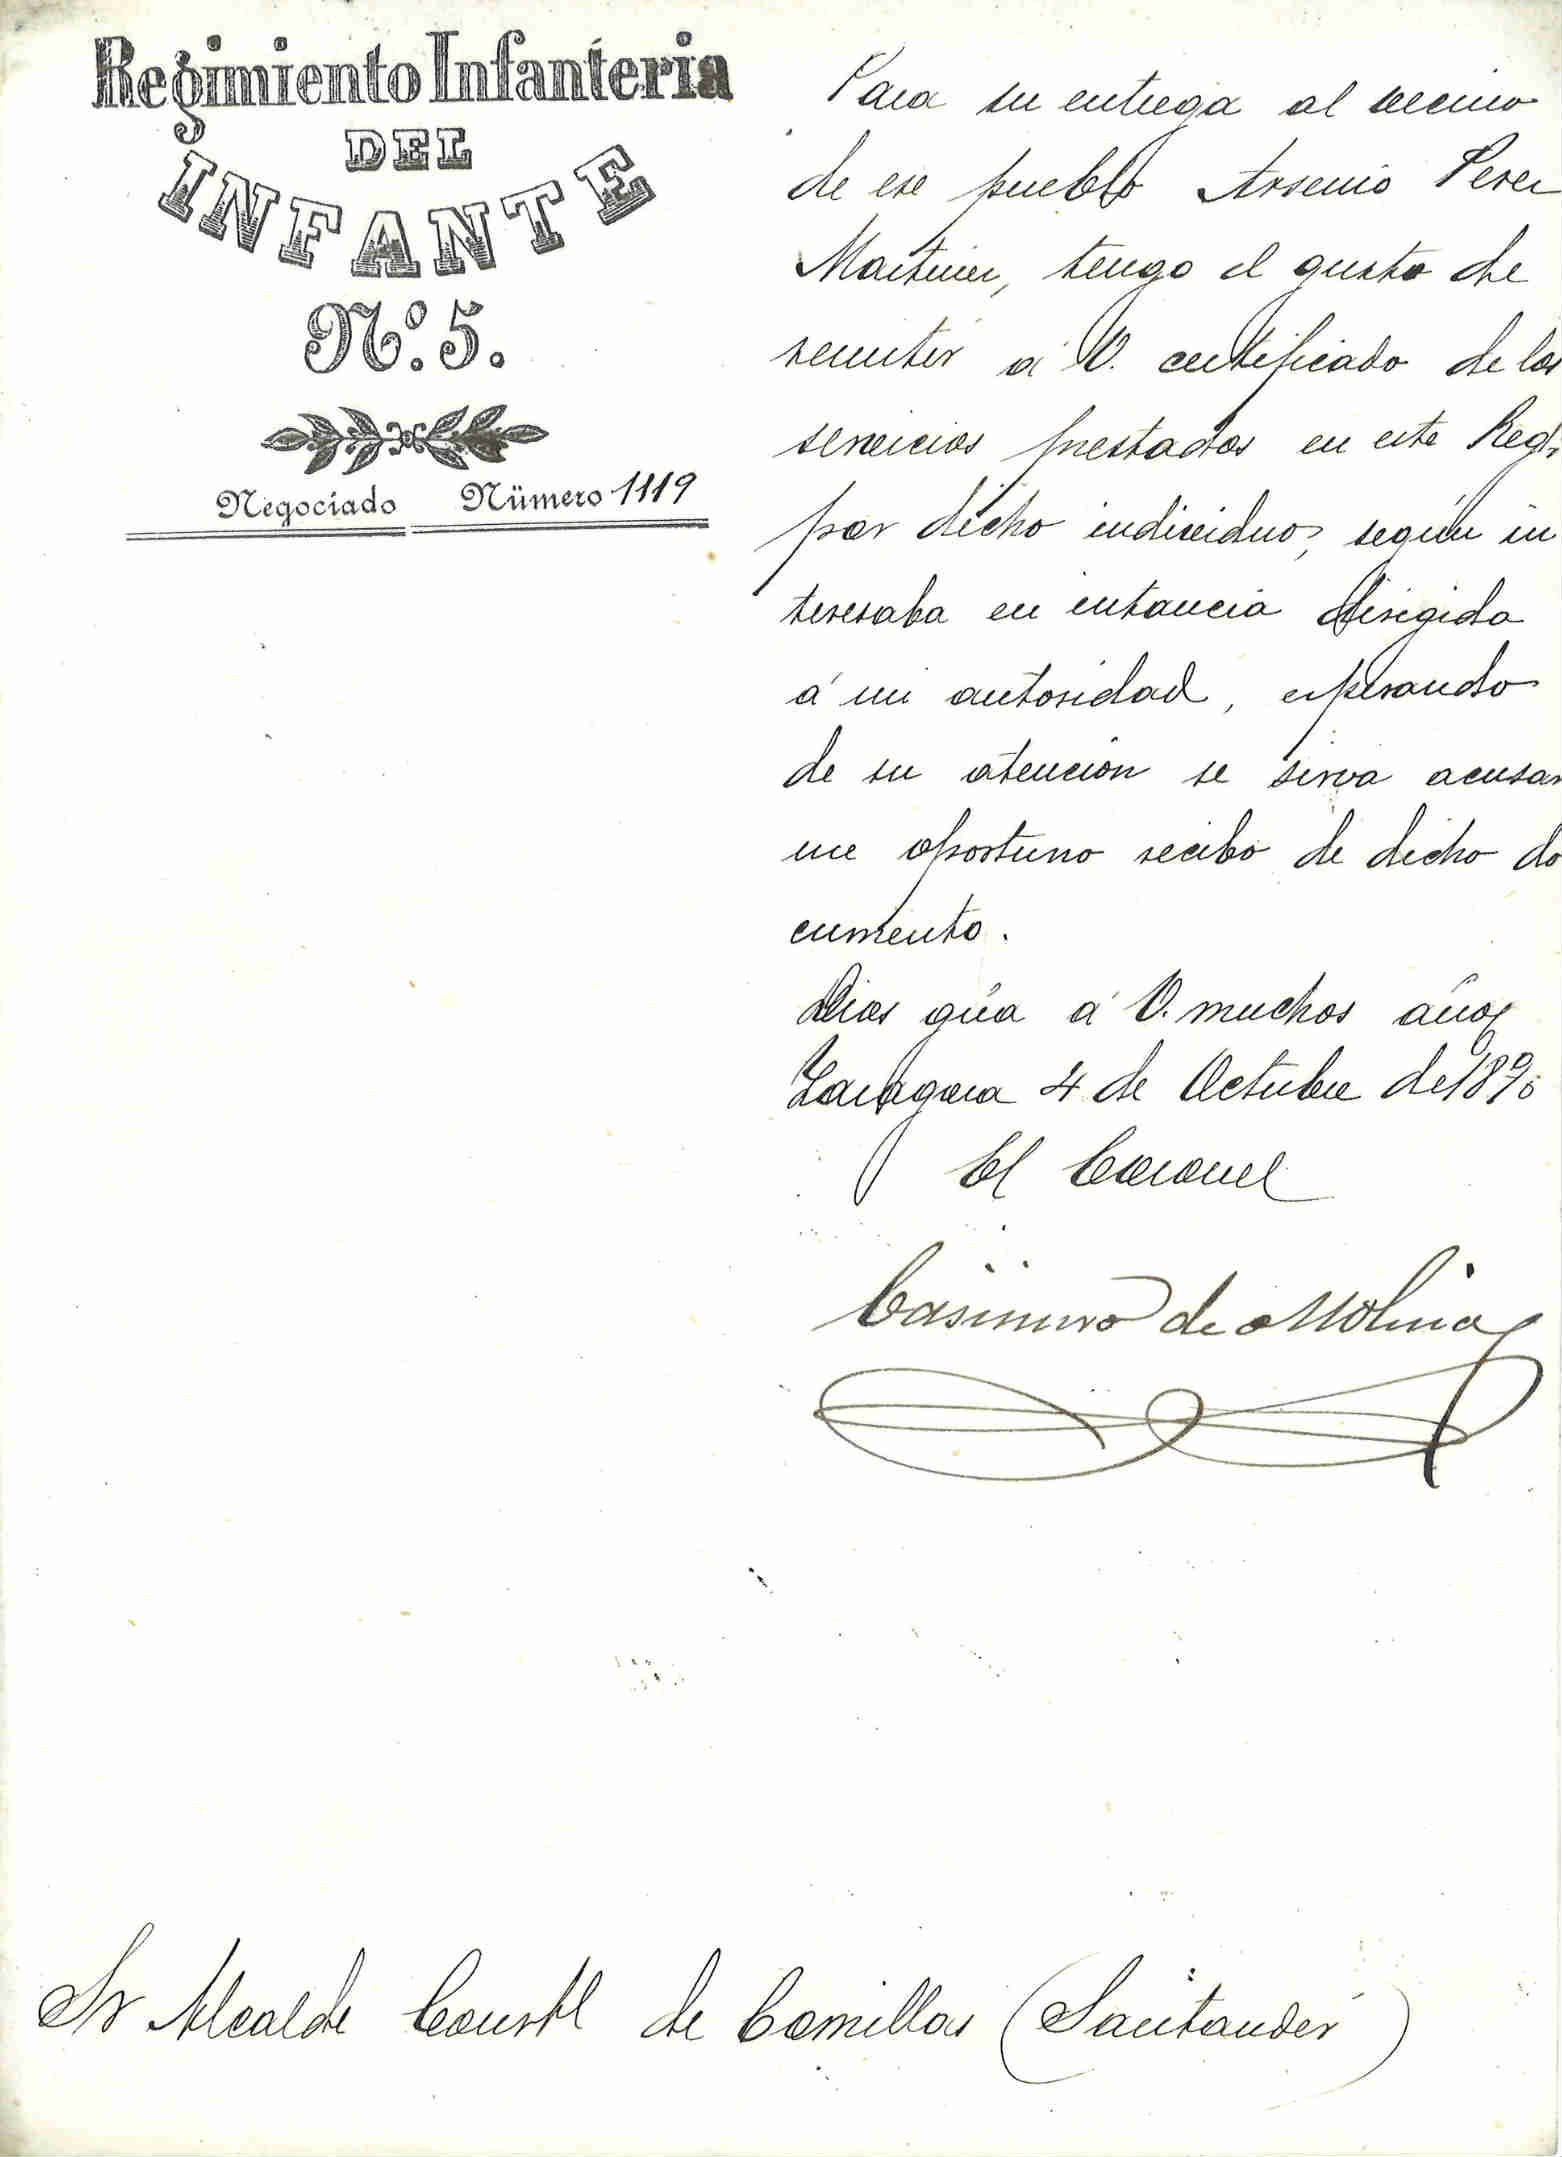 Regimiento Infantería
DEL
INFANTE
Nº. 5.
Negociado Número 1119
Para su entrega al vecino
de ese pueblo Arsenio Perez
Martinez, tengo el gusto de
remitir á V. certificado de los
servicios prestados en este Regto
por dicho individuo, según in
teresaba en intancia dirigida
á mi autoridad, esperando
de su atención se sirva acusar
me oportuno recibo de dicho do
cumento.
Dios güa á V. muchos años
Zaragoza 4 de Octubre de 1890
El Coronel
Casimiro de Molina
Sr Alcalde Constl de Comillas (Santander)